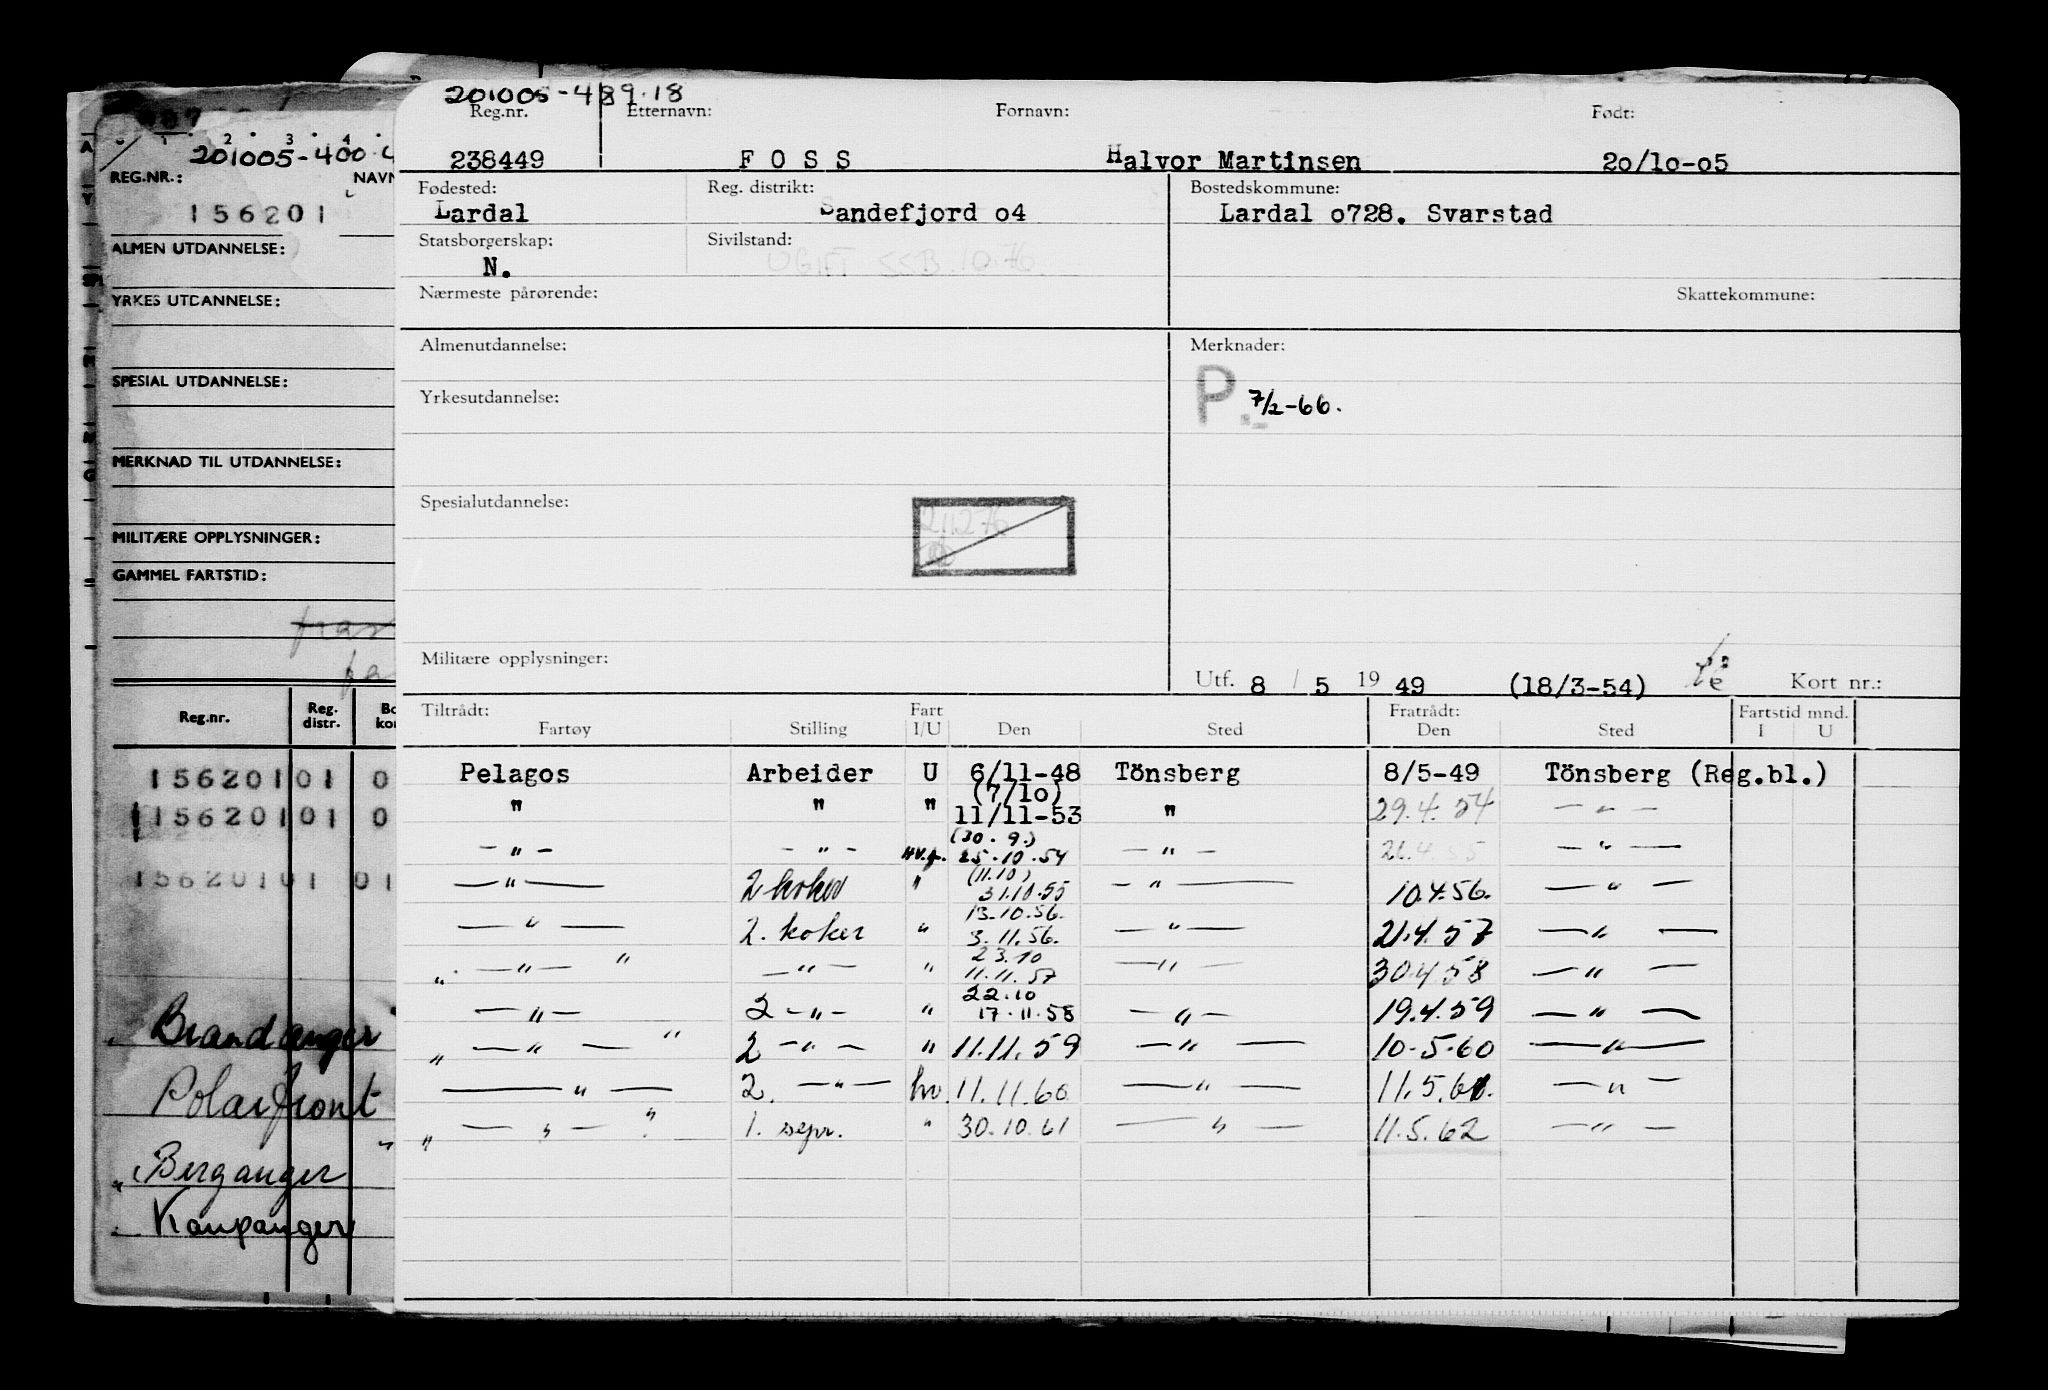 201005-489.18
Reg.nr. Etternavn: Fornavn: Født:
238449 F O S S Halvor Martinsen 2o/1o-o5
Fødested: Reg. distrikt: Bostedskommune:
Lardal Sandefjord o4 Lardal o728. Svarstad
Statsborgerskap: Sivilstand:
N. UGIFT SSB 10.76
Nærmeste pårørende: Skattekommune:
Almenutdannelse: Merknader:
P. 7/2-66.
Yrkesutdannelse:
Spesialutdannelse:
Militære opplysninger:
Utf. 8 / 5 19 49 (18/3-54) Kort nr.:
Tiltrådt: Fart Fratrådt: Fartstid mnd.
Fartøy Stilling I/U Den Sted Den Sted I U
Pelagos Arbeider U 6/11-48 Tönsberg 8/5-49 Tönsberg (Reg.bl.)
(7/1o)
" " " 11/11-53 " 29.4.54 — " —
(30.9.)
— " — — " — HV.f. 25.10.54 — " — — " —
(11.10)
— " — 2 koker " 31.10.55 — " — 10.4.56. — " —
13.10.56.
— " — 2. koker " 3.11.56. — " — 21.4.57 — " —
23.10
" — " — " — " — " 11.11.57 — " — 30.4.58 — " —
22.10
— " — 2 — " — " 17.11.58 — " — 19.4.59 — " —
" — " — " 2 — " — " 11.11.59 — " — 10.5.60 — " —
— " — 2. — " — hv. 11.11.60 — " — 11.5.61. — " —
" — " — " 1. sepr. " 30.10.61 — " — 11.5.62 — " —
A
1 2 3 4
201005-400
REG.NR.: NAVN
156201
ALMEN UTDANNELSE:
YRKES UTDANNELSE:
SPESIAL UTDANNELSE:
MERKNAD TIL UTDANNELSE:
MILITÆRE OPPLYSNINGER:
GAMMEL FARTSTID:
Reg.nr. Reg. distr.
156201 01 0
156201 01 0
156201 01 01
Brandanger "
Polarfront
" Berganger "
Kaupanger